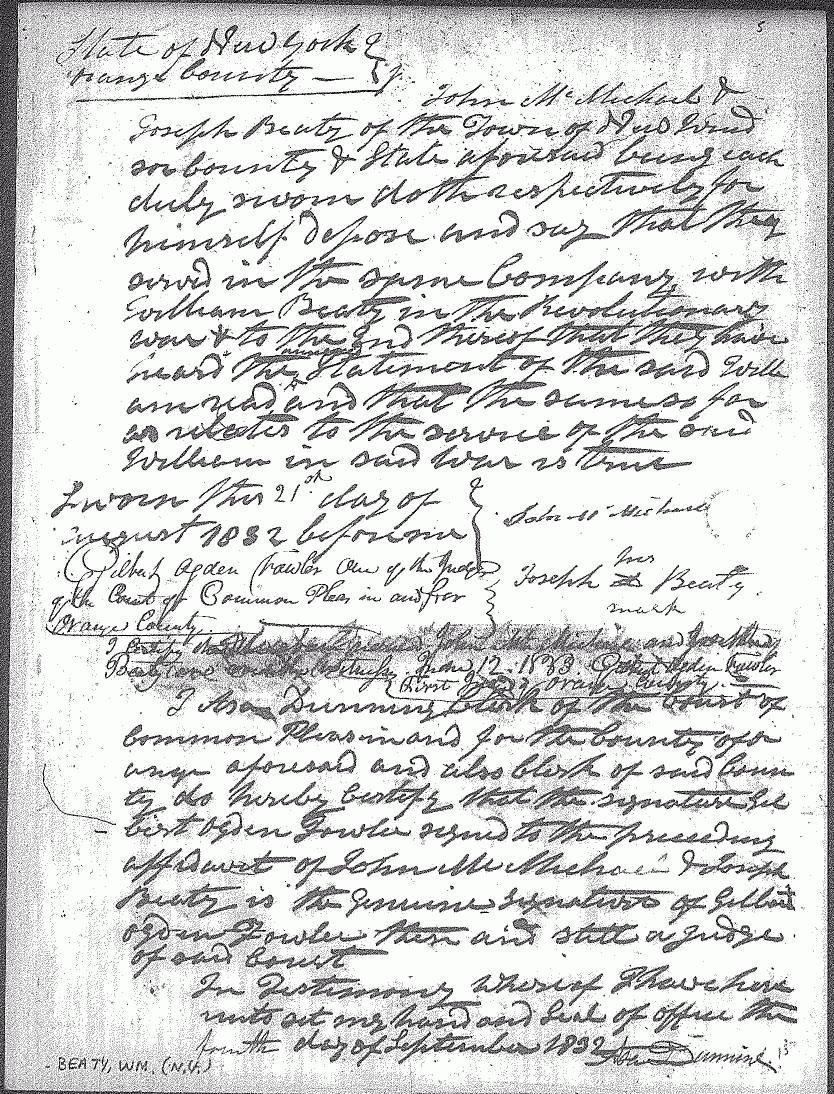 5
State of New York }
Orange County — } ss.
John McMichael &
Joseph Beaty of the Town of New Wind
sor County & State aforesaid being each
duly sworn doth respectively for
himself depose and say that they
served in the same Company with
William Beaty in the Revolutionary
war & to the End thereof that they have
heard the annexed Statement of the said Willi
am read and that the same so far
as relates to the service of the said
William in said War is true
Sworn this 21st day of
August 1832 before me
John McMichael
Gilbert Ogden Fowler one of the Judges
of the Court of Common Pleas in and for
Orange County
his
Joseph X Beaty
mark
I Certify that John McMichael and Joseph
Beaty are witnesses June 12. 1833. Gilbert Ogden Fowler
First Judge Orange County.
I Asa Dunning Clerk of the Court of
Common Pleas in and for the County of Or
ange aforesaid and also Clerk of said Coun
ty do hereby Certify that the signature Gil
bert Ogden Fowler signed to the preceding
affidavit of John McMichael & Joseph
Beaty is the Genuine Signature of Gilbert
Ogden Fowler then and still a Judge
of said Court
In Testimony whereof I have here
unto set my hand and Seal of office the
fourth day of September 1832
Asa Dunning
BEATY, WM. (N.Y.)